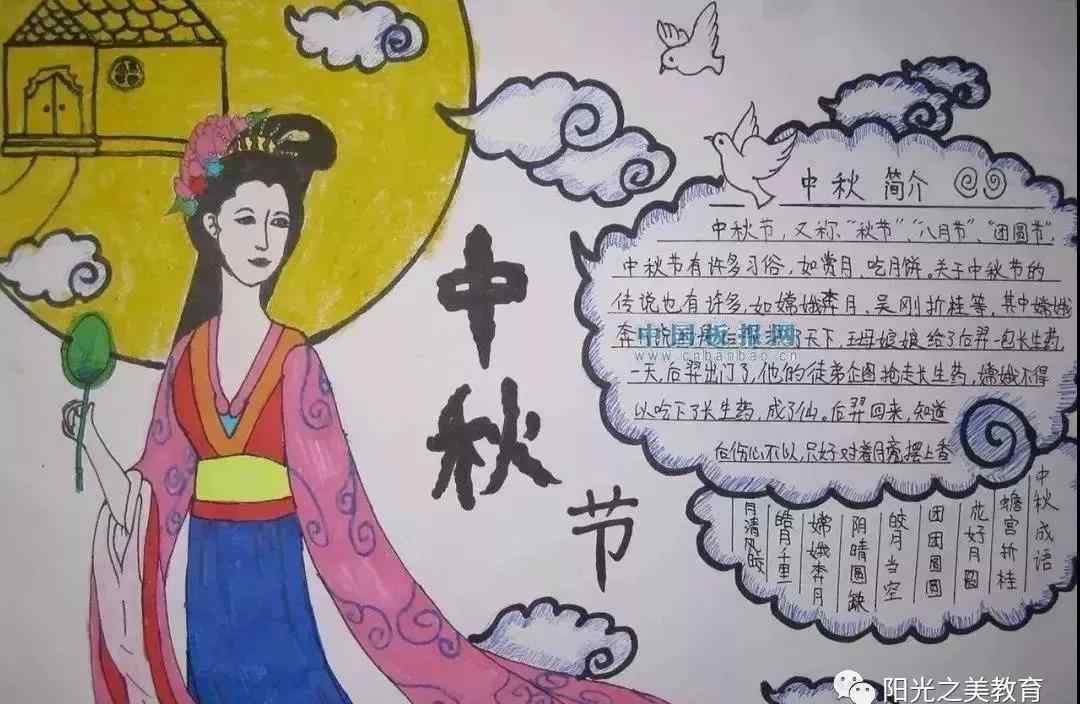 中秋节
中秋 简介
中秋节，又称"秋节"、"八月节"、"团圆节"，
中秋节有许多习俗，如赏月，吃月饼。关于中秋节的
传说也有许多，如嫦娥奔月，吴刚折桂等，其中嫦娥
奔 了天下，王母娘娘给了后羿一包长生药
一天，后羿出门了，他的徒弟企图抢走长生药，嫦娥不得
以吃下了长生药，成了仙。后羿回来，知道
后伤心不以，只好对着月亮摆上香
中国板报网
www.cnbanbao.cn
中秋成语
蟾宫折桂
花好月圆
团团圆圆
皎月当空
阴晴圆缺
嫦娥奔月
皓月千里
月清风皎
阳光之美教育